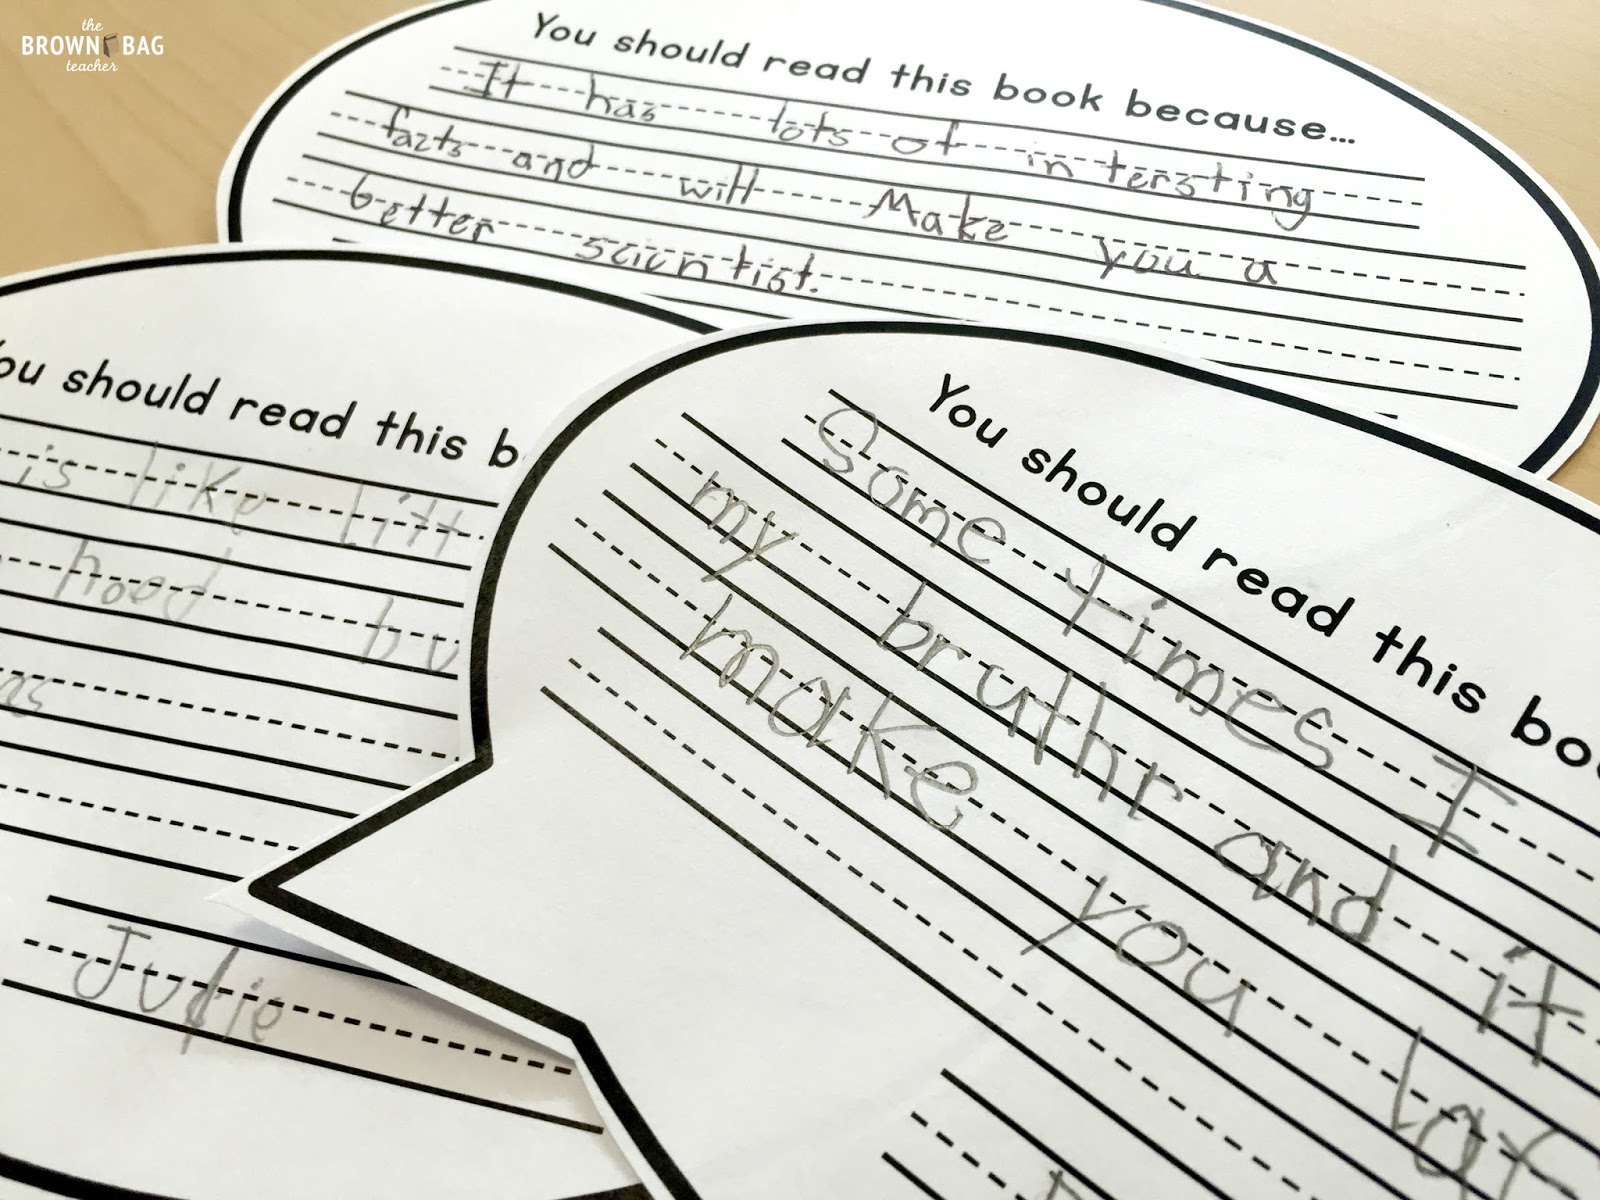 the
BROWN BAG
teacher
You should read this book because...
It has lots of intersting
facts and will Make you a
better scicntist.
You should read this b
is like litt
hood
as
Judie
You should read this boo
Some times I
my bruthr and it
make you laf